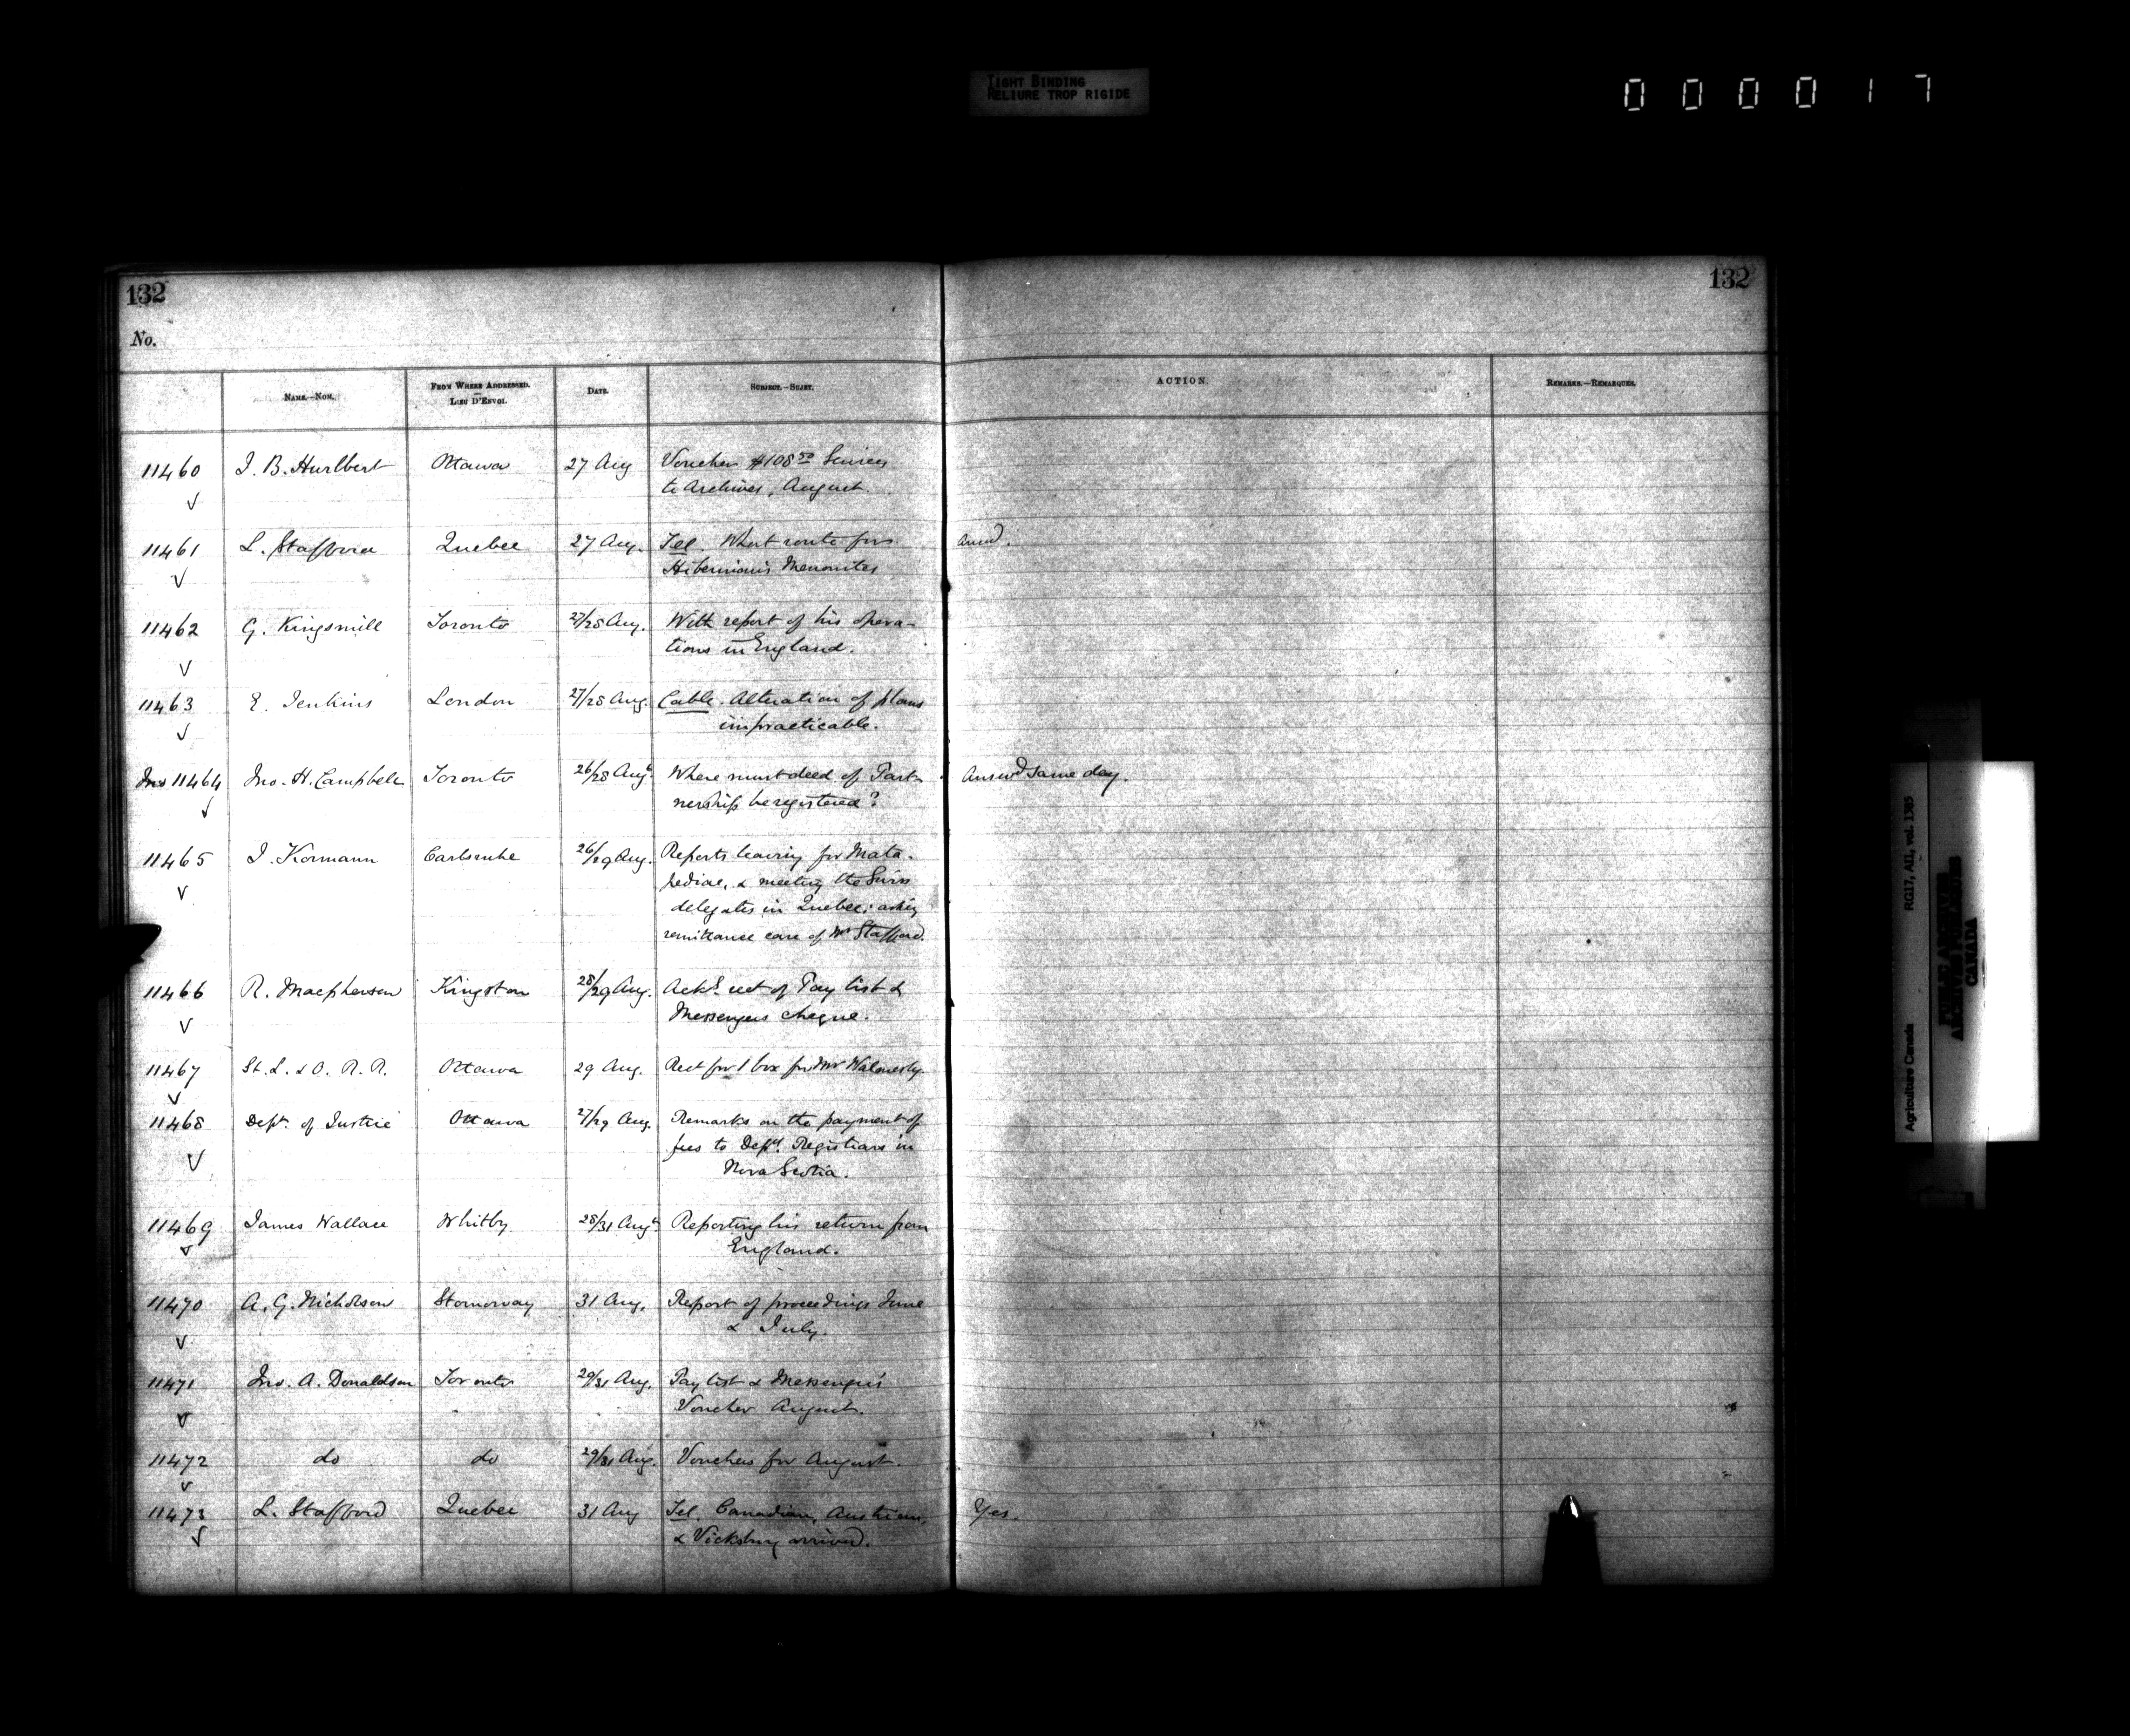 TIGHT BINDING
RELIURE TROP RIGIDE
000017
132
132
No.
NAME.—NOM.
FROM WHERE ADDRESSED.
—
LIEU D'ENVOI.
DATE.
SUBJECT.—SUJET.
ACTION.
REMARKS.—REMARQUES.
11460 J. B. Hurlbert Ottawa 27 Aug Voucher $108.50 Services
to Archives, August.
11461 L. Stafford Quebec 27 Aug. Tel. What route for Answd.
Hibernian's Menonites
11462 G. Kingsmill Toronto 27/28 Aug. With report of his opera-
tions in England.
11463 E. Jenkins London 27/28 Aug. Cable. Alteration of plans
impracticable.
11464 Jno. H. Campbell Toronto 26/28 Aug. Where must deed of Part- Answd same day.
nership be registered?
11465 J. Kormann Carlsruhe 26/29 Aug. Reports leaving for Mata-
pediac, & meeting the Swiss
delegates in Quebec; asking
remittance care of Mr Stafford.
11466 R. Macpherson Kingston 28/29 Aug. Ackg. rect of Pay list &
Messengers cheque.
11467 St. L. & O. R. R. Ottawa 29 Aug. Rect for 1 box for Mr Walmesly.
11468 Dept. of Justice Ottawa 27/29 Aug. Remarks on the payment of
fees to Depy. Registrars in
Nova Scotia.
11469 James Wallace Whitby 28/31 Aug. Reporting his return from
England.
11470 A. G. Nicholson Stornoway 31 Aug. Report of proceedings June
& July.
11471 Jno. A. Donaldson Toronto 29/31 Aug. Pay list & Messenger's
Voucher August.
11472 do do 29/31 Aug. Vouchers for August.
11473 L. Stafford Quebec 31 Aug Tel. Canadian, Austrian, Yes.
& Vicksburg arrived.
Agriculture Canada RG17, AII, vol. 1385
PUBLIC ARCHIVES
ARCHIVES PUBLIQUES
CANADA